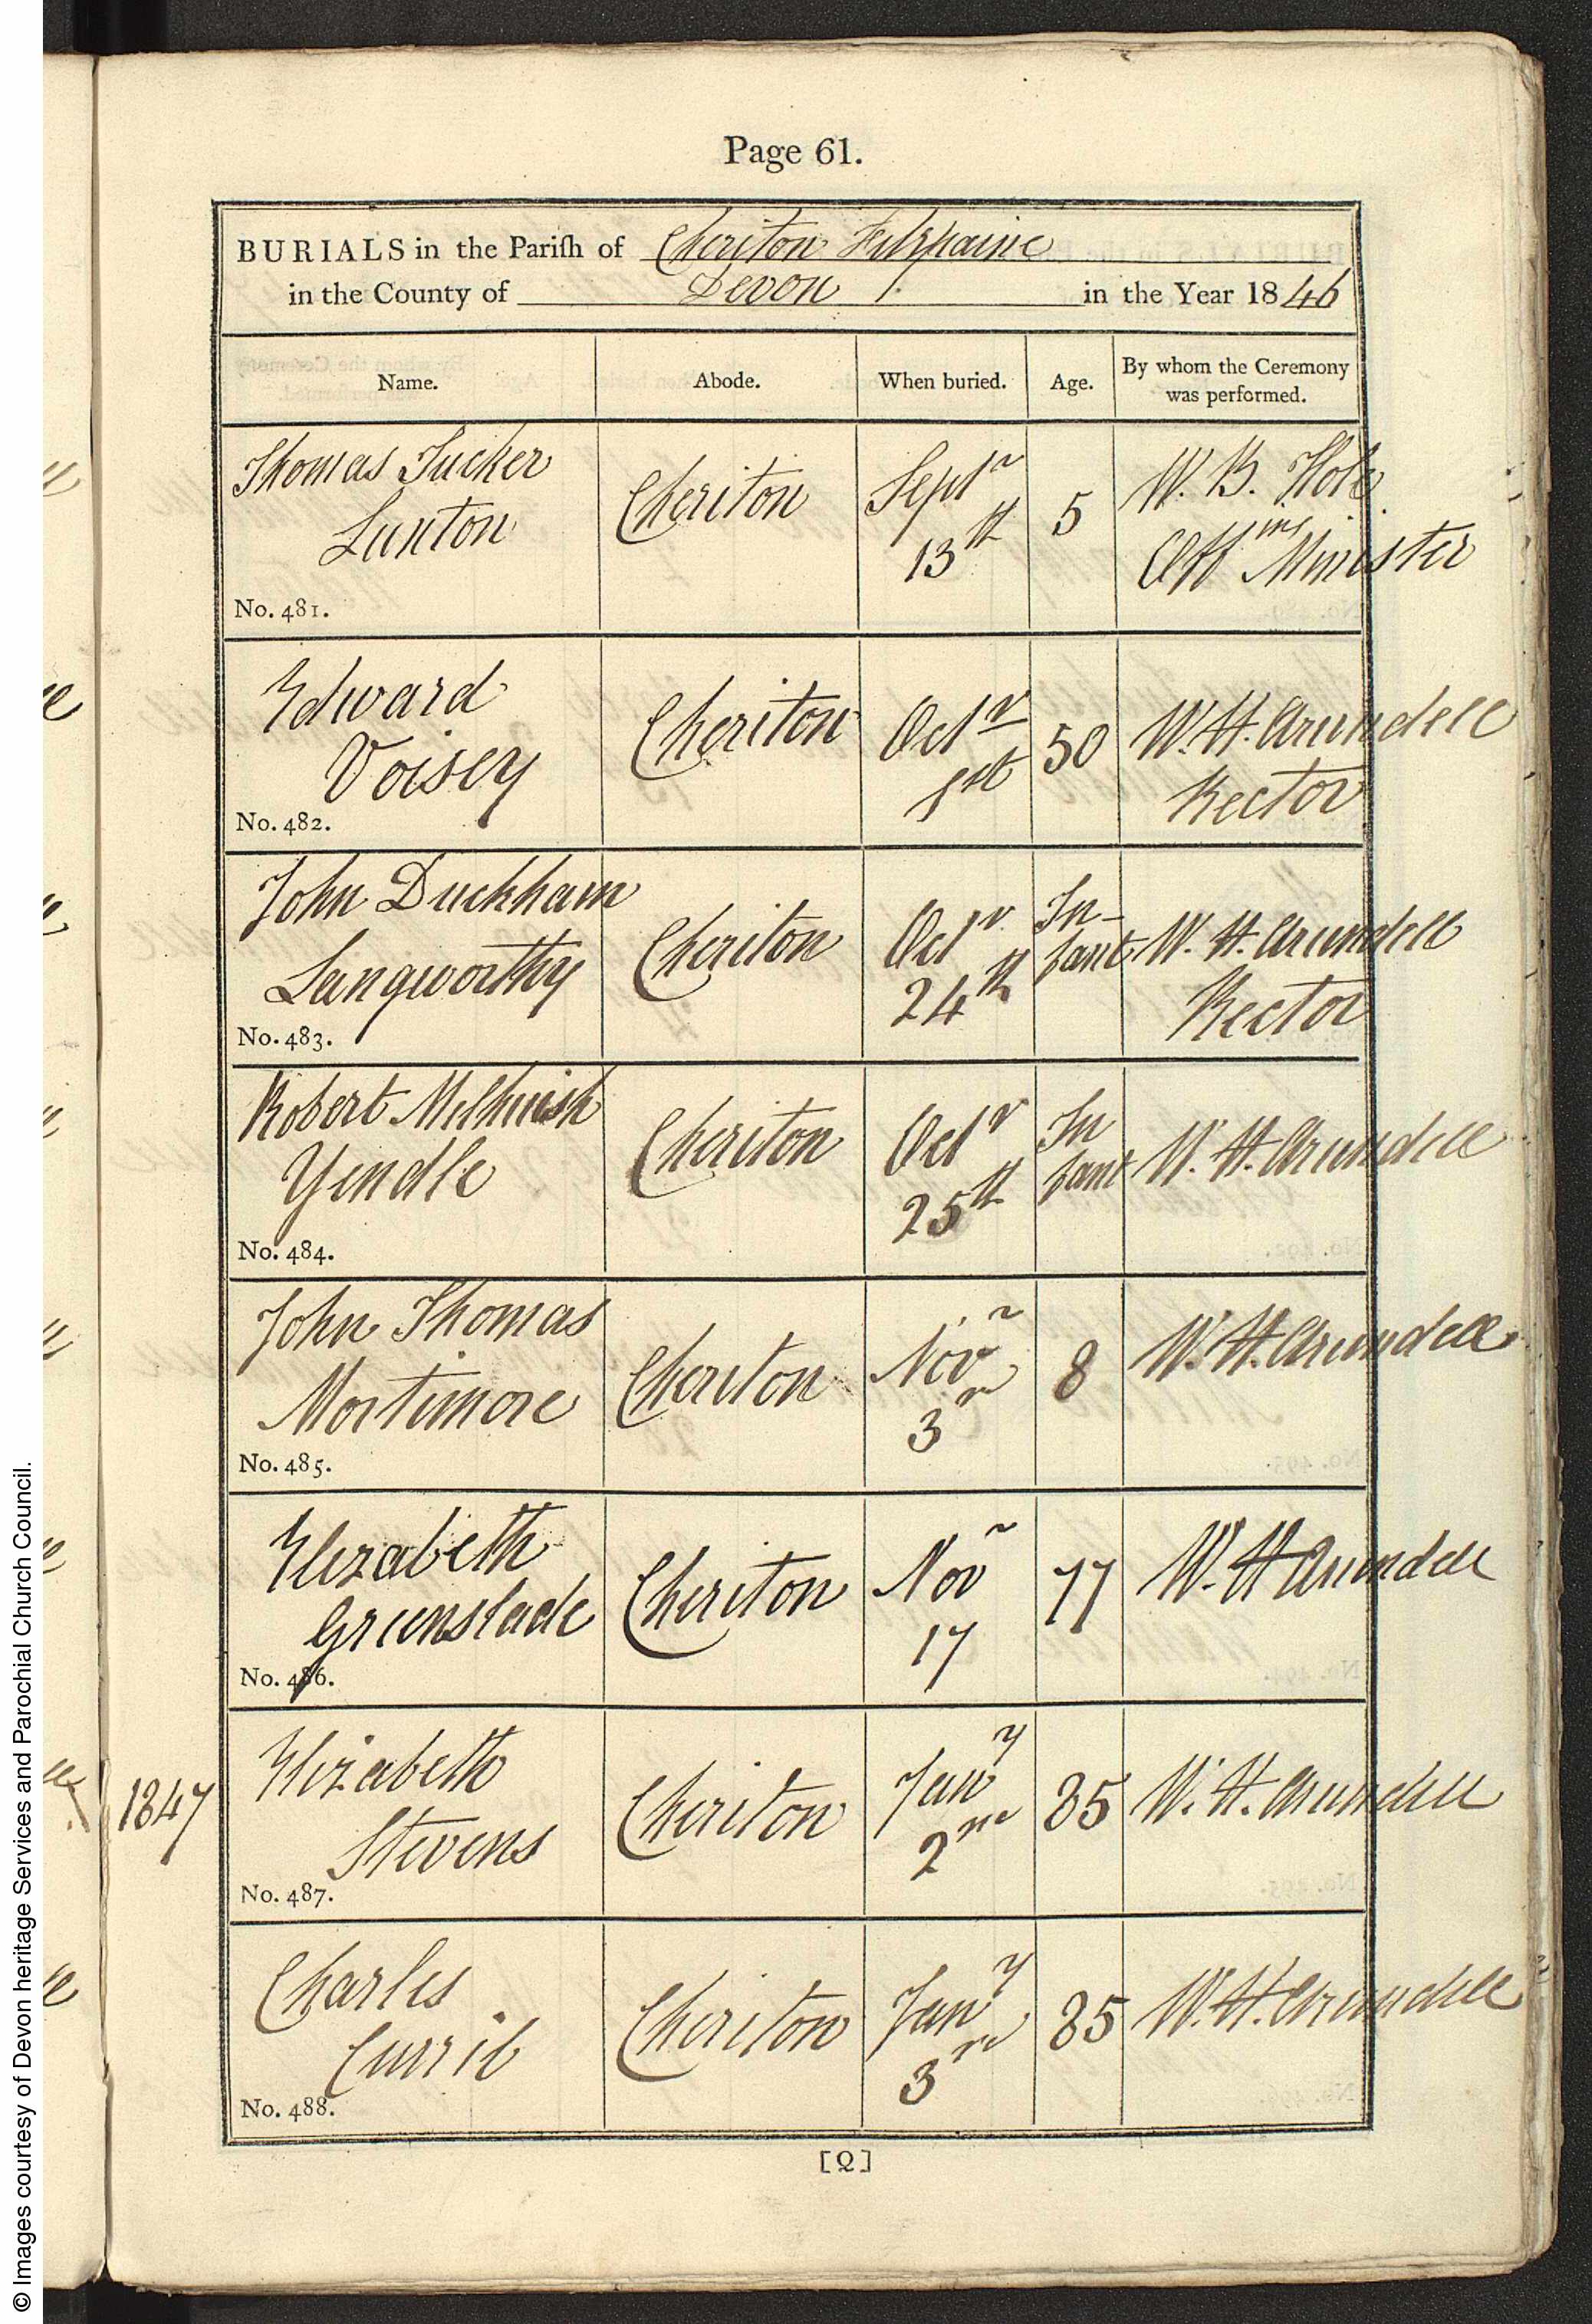 Page 61.
BURIALS in the Pariſh of Cheriton Fitzpaine
in the County of Devon in the Year 1846
Name. Abode. When buried. Age. By whom the Ceremony was performed.
Thomas Tucker
Luxton
No. 481.
Cheriton
Septr
13th
5
W. B. Hole
Offing Minister
Edward
Voisey
No. 482.
Cheriton
Octr
1st
50
W. H. Arundell
Rector
John Duckham
Langworthy
No. 483.
Cheriton
Octr
24th
In-
fant
W. H. Arundell
Rector
Robert Melhuish
Yendle
No. 484.
Cheriton
Octr
25th
In
fant
W. H. Arundell
John Thomas
Mortimore
No. 485.
Cheriton
Novr
3rd
8
W. H. Arundell
Elizabeth
Greenslade
No. 486.
Cheriton
Novr
17
77
W. H Arundell
1847
Elizabeth
Stevens
No. 487.
Cheriton
Jany
2nd
85
W. H. Arundell
Charles
Currie
No. 488.
Cheriton
Jany
3rd
85
W. H. Arundell
[Q]
© Images courtesy of Devon heritage Services and Parochial Church Council.